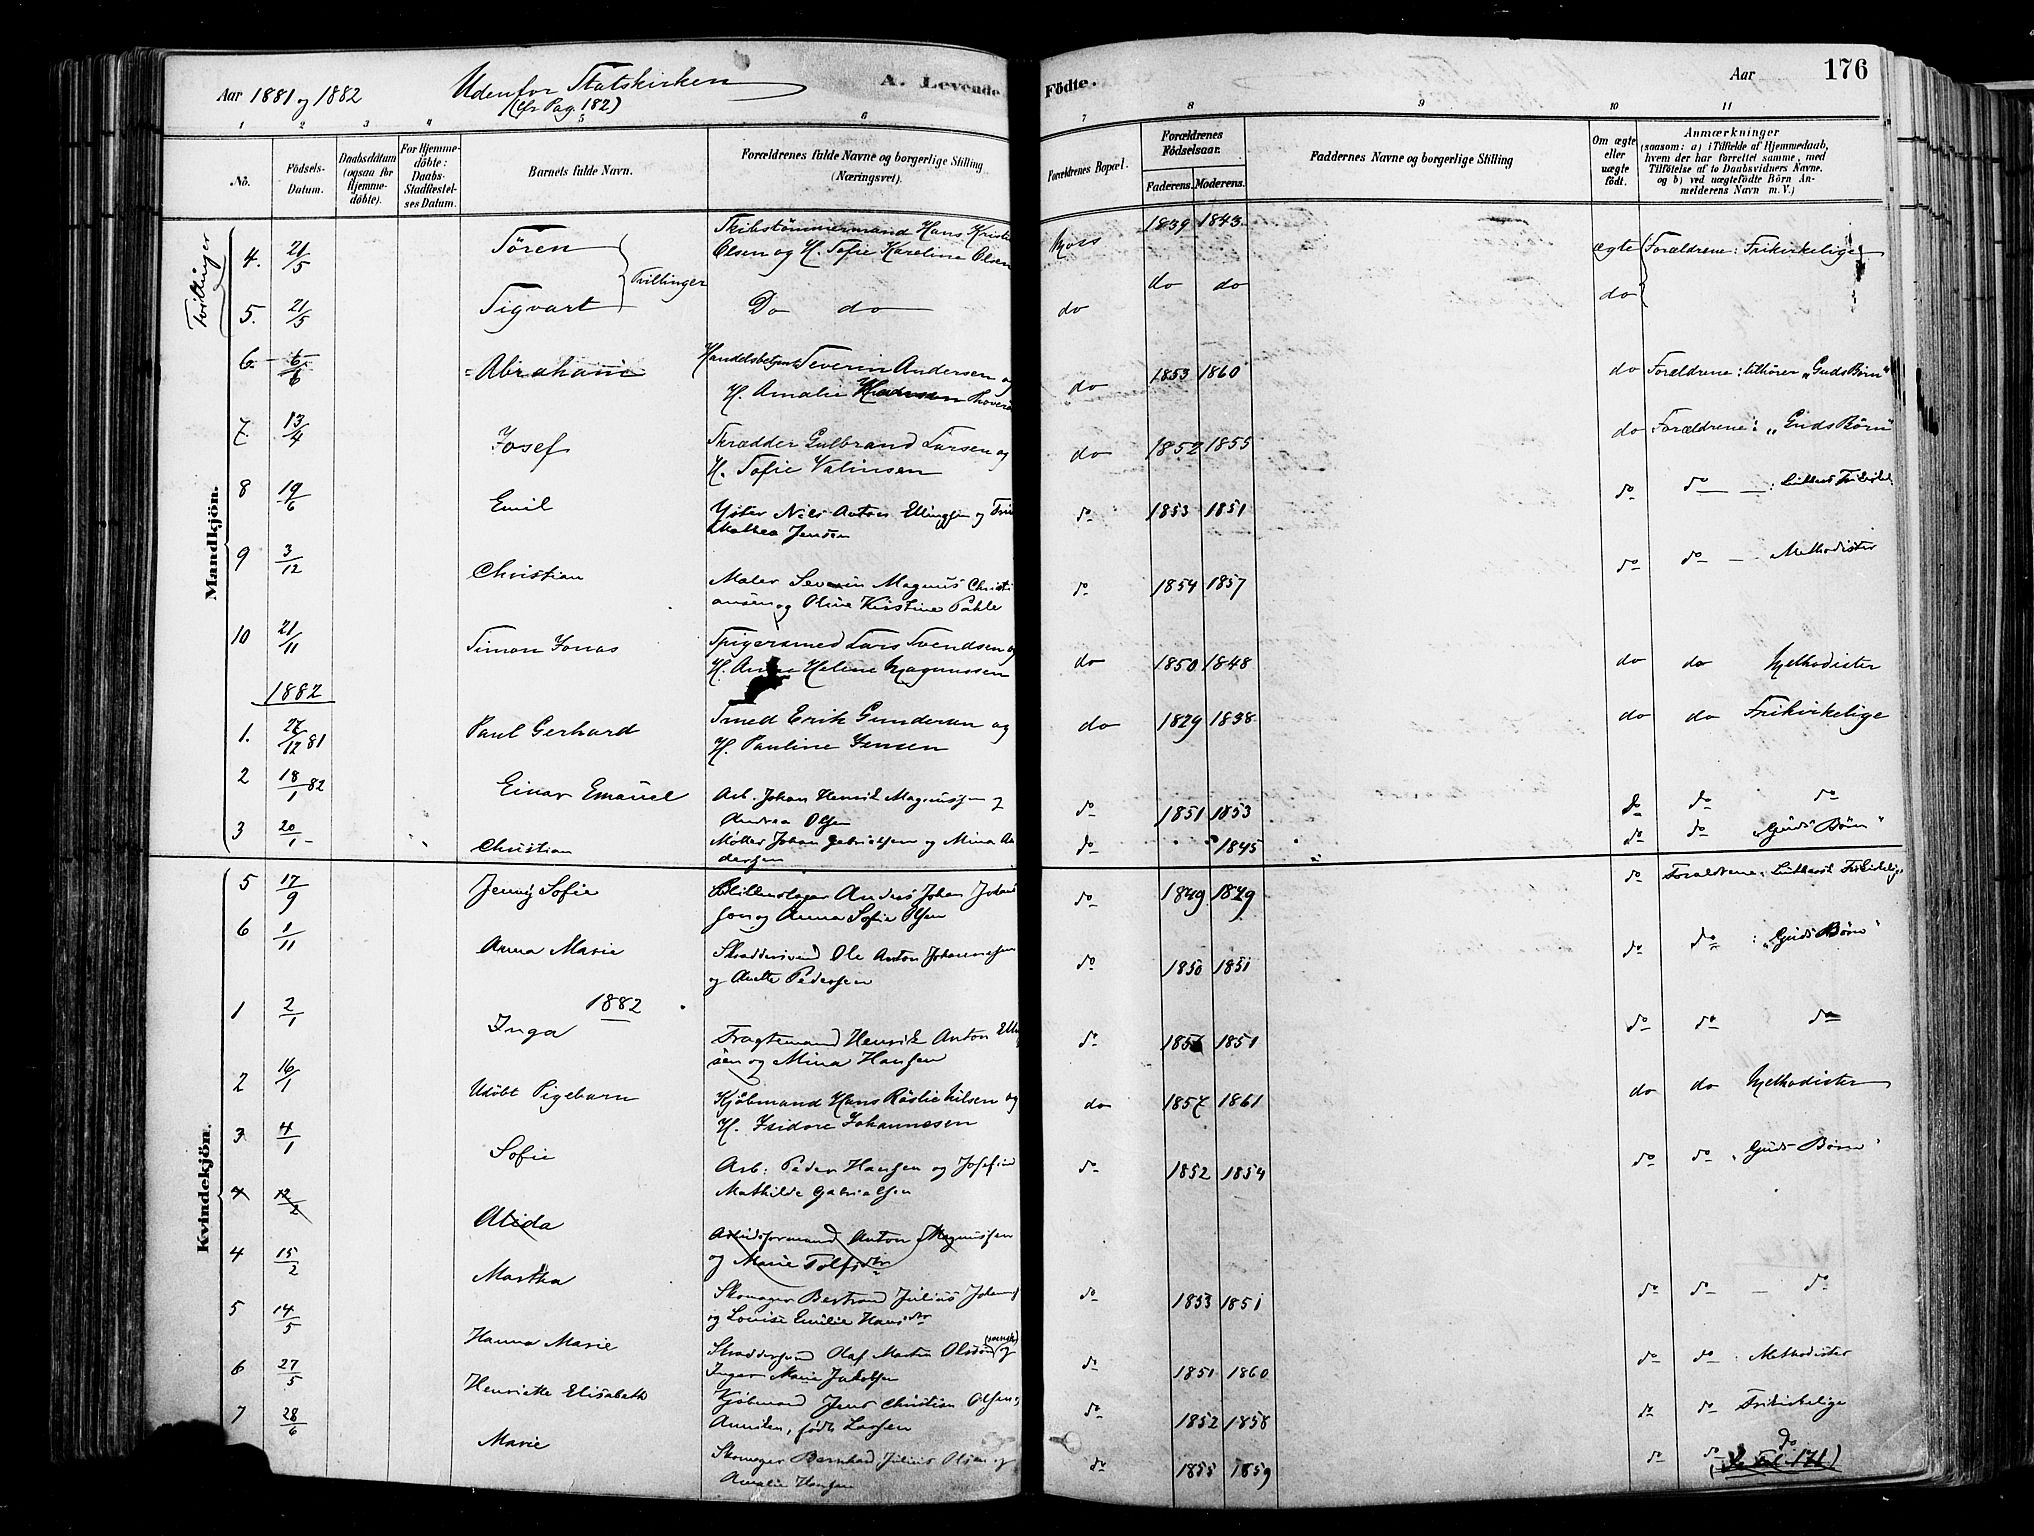 Aar 1881 og 1882 Udenfor Statskirken A. Levende Födte. Aar 176
(Cfr Pag. 182)
1 2 3 4 5 6 7 8 9 10 11
No. Födsels-Datum. Daabsdatum (ogsaa for Hjemmedöbte). For Hjemmedöbte: Daabs-Stadfæstelses Datum. Barnets fulde Navn. Forældrenes fulde Navne og borgerlige Stilling (Næringsvei). Forældrenes Bopæl. Forældrenes Födselsaar. Faderens. Moderens. Faddernes Navne og borgerlige Stilling Om ægte eller uægte födt. Anmærkninger (saasom: a) i Tilfælde af Hjemmedaab, hvem der har forrettet samme, med Tilföielse af to Daabsvidners Navne, og b) ved uægtefödte Börn Anmelderens Navn m. V.)
Mandkjön.
Tvillinger
4. 21/5 Sören Tvillinger Skibstömmermand Hans Krist
Olsen og H. Sofie Karoline Olsen Moss 1839 1843 ægte Forældrene: Frikirkelige
5. 21/5 Sigvart Do do do do do do
6 6/6 Abraham Handelsbetjent Severin Andersen og
H. Amalie do 1853 1860 do Forældrene: tilhører "Guds Børn"
7. 13/4 Josef Skrædder Gulbrand Larsen og
H. Sofie Valinsen do 1852 1855 do Forældrene: "Guds Børn"
8 19/6 Emil Nils Anton Ellingsen og
Mathea Jensen do 1853 1851 do do
9 3/12 Christian Maler Severin Magnus Christi
ansen og Oline Kristine Pahle do 1854 1857 do do Methodister
10 21/11 Simon Jonas Spigersmed Lars Svendsen og
H. Helene Magnussen do 1850 1848 do do Methodister
1882
1. 27/12 81 Paul Gerhard Smed Erik Gundersen og
H. Pauline Jensen do 1829 1838 do do Frikirkelige
2 18/1 82 Einar Emanuel Arb. Johan Henrik Magnussen og
Andrea Olsen do 1851 1853 do do do
3 20/1 Christian Møller Johan Gabrielsen og Mina An
dersen do 1845 do do "Guds Børn"
Kvindekjön.
5 17/9 Jenny Sofie Anders Johan
og Anna Sofie Olsen do 1849 1849 do Forældrene:
6 1/11 Anna Marie Skrædersvend Ole Anton Johannesen
og Anette Pedersen do 1850 1851 do do : "Guds Børn"
1882
1 2/1 Inga Fragtemand Henrik Anton
sen og Mina Hansen do 1851 do do do
2 16/1 Udöbt Pigebarn Kjöbmand Hans Nilsen og
H. Isidore Johannesen do 1857 1861 do do Methodister
3 4/1 Sofie Arb: Peder Hansen og Josefine
Mathilde Gabrielsen do 1852 1854 do do "Guds Børn"
4 12/2 Alida Arbeidsformand Anton Magnussen
og Marie
4 15/2 Martha Skomager Bertrand Julius
og Louise Emilie Hansdtr do 1853 1851 do do do
5 14/5 Hanna Marie Olaf Martin (svensk) og
Inger Marie Jakobsen do 1851 1860 do do Methodister
6 27/5 Henriette Elisabeth Kjöbmand Jens Christian Olsen
født Larsen do 1852 1858 do do Frikirkelige
7 28/6 Marie Skomager Bernhard Julius Olsen og
Amalie Hansen do 1855 1859 do do do